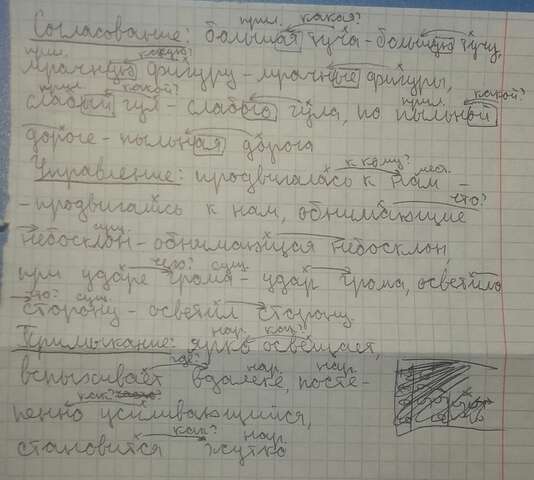 прил. какая?
Согласование: большая туча – большую тучу,
прил. какую?
мрачную фигуру – мрачные фигуры,
прил. какой? прил. какой?
слабый гул – слабого гула, по пыльной
дороге – пыльная дорога
к кому? мест.
Управление: продвигалась к нам –
что?
– продвигаясь к нам, обнимающие
сущ.
небосклон – обнимающая небосклон,
чего? сущ.
при ударе грома – удар грома, осветило
что? сущ.
сторону – осветил сторону.
нар. как?
Примыкание: ярко освещает,
где? нар. нар.
вспыхивает вдалеке, посте-
как?
пенно усиливающийся,
как? нар.
становится жутко